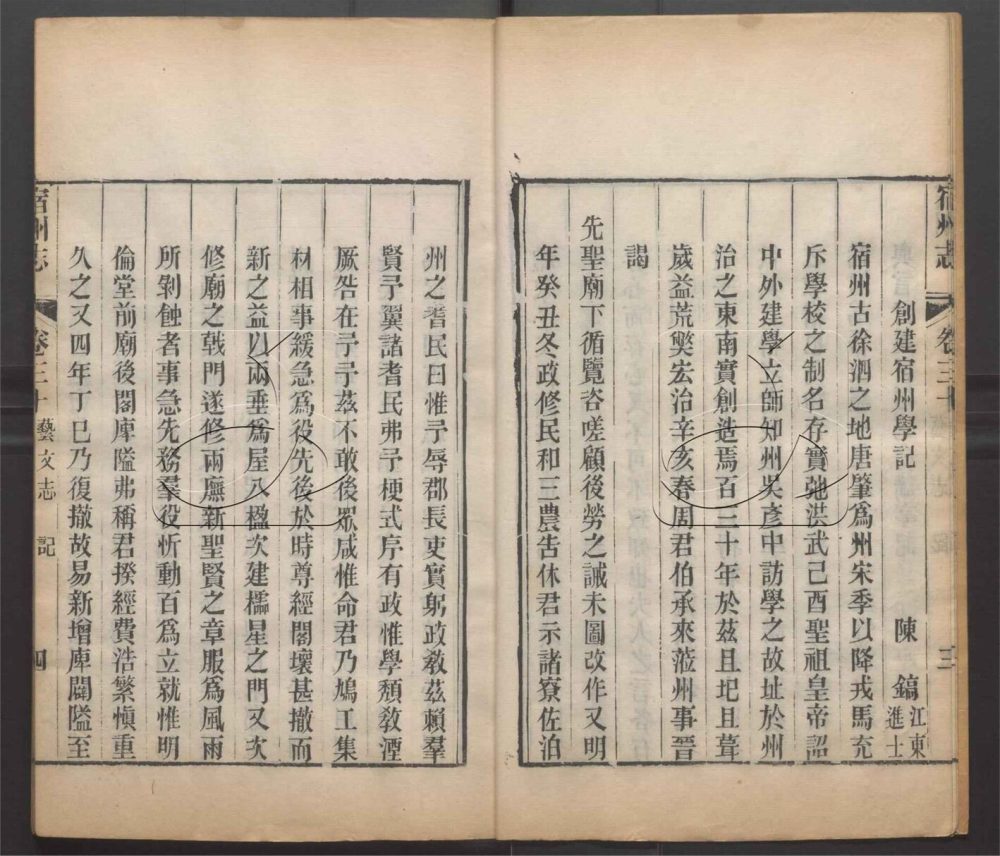 宿州志 卷三十 三
創建宿州學記 陳鎬 江東進士
宿州古徐泗之地唐肇為州宋季以降戎馬充
斥學校之制名存實弛洪武己酉聖祖皇帝詔
中外建學立師知州吳彥中訪學之故址於州
治之東南實創造焉百三十年於茲且圮且葺
歲益荒獘宏治辛亥春周君伯承來蒞州事晉
謁
先聖廟下循覽咨嗟顧後勞之誡未圖改作又明
年癸丑冬政修民和三農告休君示諸寮佐洎
州之耆民曰惟予辱郡長吏實躬政教茲賴羣
賢予翼諸耆民弗予梗式序有政惟學頹教湮
厥咎在予予茲不敢後眾咸惟命君乃鳩工集
材相事緩急為役先後於時尊經閣壞甚撤而
新之益以兩垂為屋八楹次建櫺星之門又次
修廟之戟門遂修兩廡新聖賢之章服為風雨
所剝蝕者事急先務羣役忻動百為立就惟明
倫堂前廟後閣庳隘弗稱君揆經費浩繁慎重
久之又四年丁巳乃復撤故易新增庳闢隘至
宿州志 卷三十 藝文志 記 四